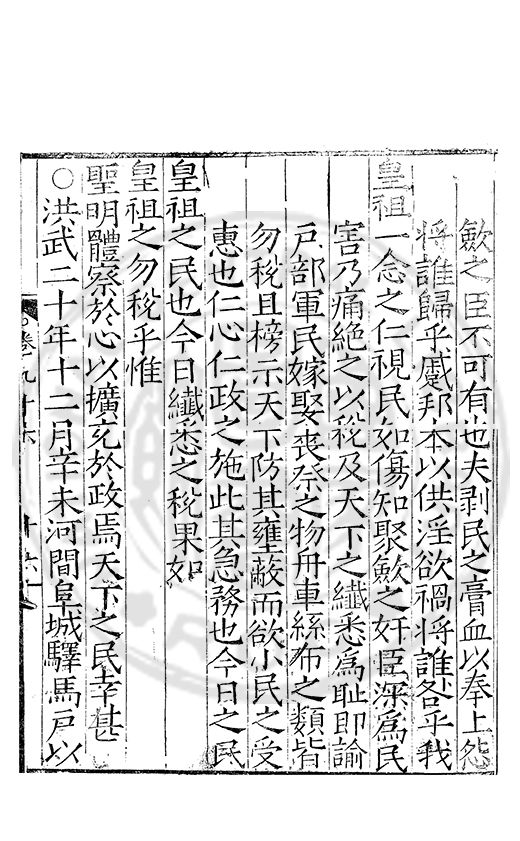 斂之臣不可有也夫剥民之膏血以奉上怨
將誰歸乎蹙邦本以供淫欲禍將誰咎乎我
皇祖一念之仁視民如傷知聚斂之奸臣深為民
害乃痛絶之以稅及天下之纖悉為恥即諭
户部軍民嫁娶喪祭之物舟車絲布之類皆
勿稅且榜示天下防其壅蔽而欲小民之受
惠也仁心仁政之施此其急務也今日之民
皇祖之民也今日纖悉之稅果如
皇祖之勿稅乎惟
聖明體察於心以擴充於政焉天下之民幸甚
○洪武二十年十二月辛未河間阜城驛馬户以
卷九十六
十六